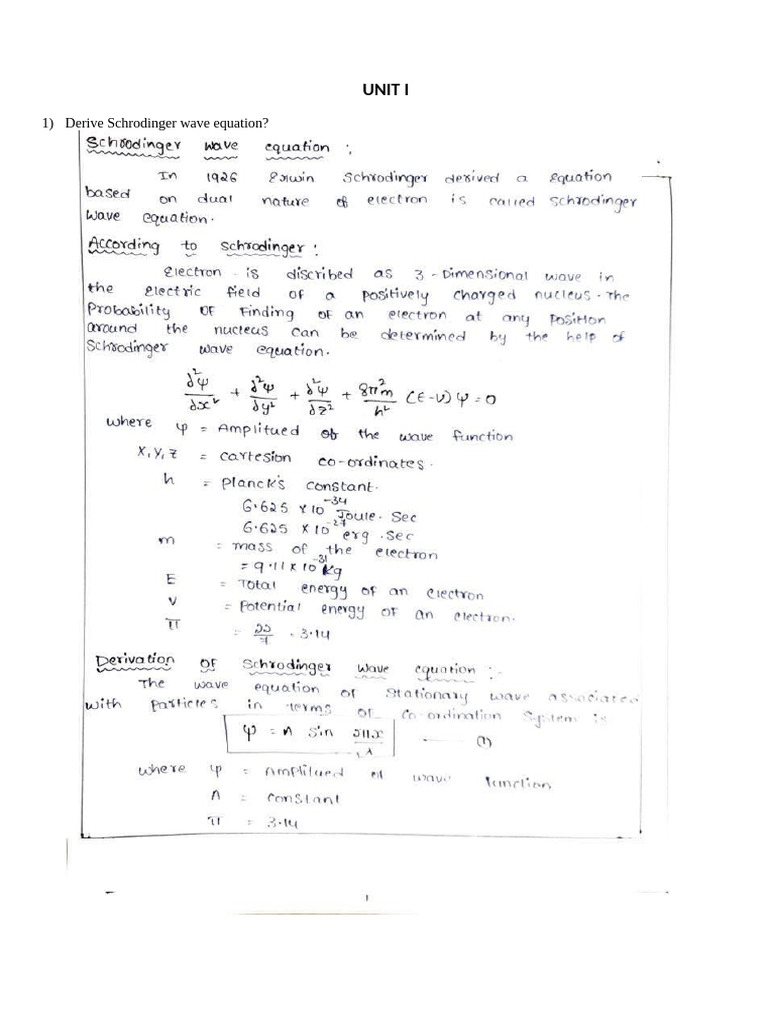 UNIT I
1) Derive Schrodinger wave equation?
Schrodinger wave equation :
In 1926 Erwin Schrodinger derived a Equation
based on dual nature of electron is called schrodinger
wave equation.
According to schrodinger :
Electron is discribed as 3-Dimensional wave in
the Electric field of a positively charged nucleus. The
Probability OF Finding OF an electron at any position
around the nucleus can be determined by the help of
Schrodinger wave equation.
∂²ψ/∂x² + ∂²ψ/∂y² + ∂²ψ/∂z² + 8π²m/h² (E-V) ψ = 0
where ψ = Amplitued of the wave function
X, Y, Z = cartesion co-ordinates.
h = planck's constant.
6.625 x 10⁻³⁴ Joule. Sec
6.625 x 10⁻²⁷ erg .Sec
m = mass of the electron
= 9.11 x 10⁻³¹ kg
E = Total energy of an electron
V = potential energy of an electron.
π = 22/7 . 3.14
Derivation OF Schrodinger wave equation :-
The wave equation of Stationary wave associated
with particles in terms of co-ordination System is
ψ = A sin 2πx/λ (1)
where ψ = Amplitued of wave function
A = constant
π = 3.14
1